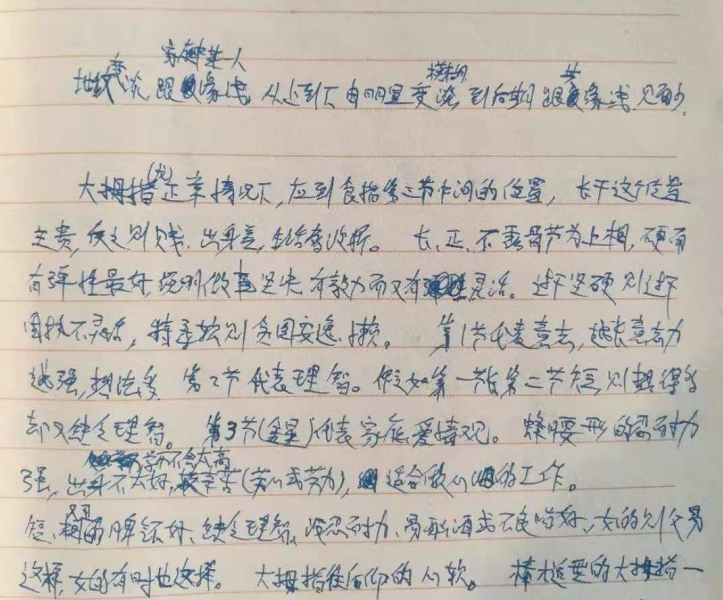 家中某一人
地纹变淡,跟缘浅。从上到下由明显变模糊,到后期跟其缘浅,见面少。
大拇指(龙)正常情况下,应到食指第三节中间的位置,长于这个位置
主贵,反之则贱,出身差,生活奔波。长、正、不露骨节为上相,硬而
有弹性最好,说明做事坚决有毅力而又有灵活。过于坚硬则过于
固执不灵活,特柔软则贪图安逸、懒。第1节代表意志,越长意志力
越强,想法多。第2节代表理智。假如第一节长第二节短,则想得多
却又缺乏理智。第3节(金星)代表家庭爱情观。蜂腰形的忍耐力
学术不会太高
强,出身不太好,较辛苦(劳心或劳力),适合做心的工作。
短、粗的脾气不好,缺乏理智,没忍耐力,男的酒或不良嗜好,女的则
这样,女的有时也这样。大拇指往后仰的心软。棒槌型的大拇指一